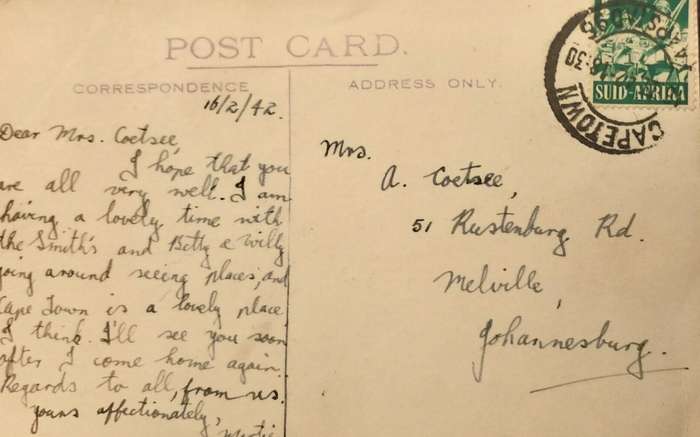 POST CARD.
CORRESPONDENCE
ADDRESS ONLY.
16/2/42.
Dear Mrs. Coetsee,
I hope that you
are all very well. I am
having a lovely time with
the Smith's and Betty & Willy
going around seeing places, and
Cape Town is a lovely place
I think. I'll see you soon
after I come home again.
Regards to all, from us.
yours affectionately,
Mrs.
A. Coetsee,
51 Rustenburg Rd.
Melville,
Johannesburg.
SUID-AFRIKA
CAPETOWN